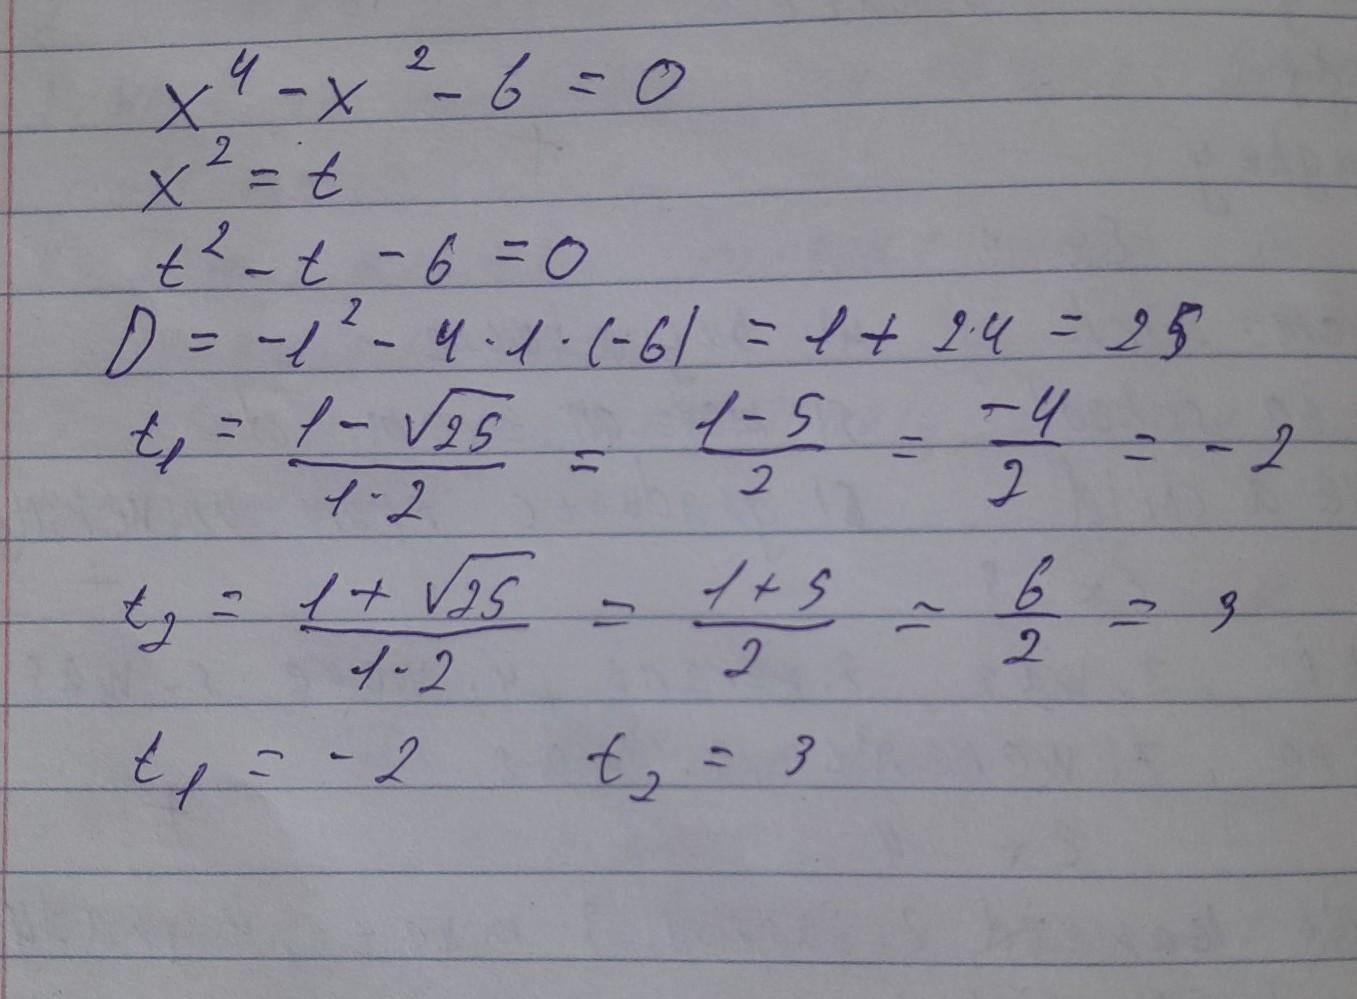 x⁴ - x² - 6 = 0
x² = t
t² - t - 6 = 0
D = -1² - 4·1·(-6) = 1 + 24 = 25
t₁ = (1 - √25)/(1·2) = (1 - 5)/2 = -4/2 = -2
t₂ = (1 + √25)/(1·2) = (1 + 5)/2 = 6/2 = 3
t₁ = -2 t₂ = 3